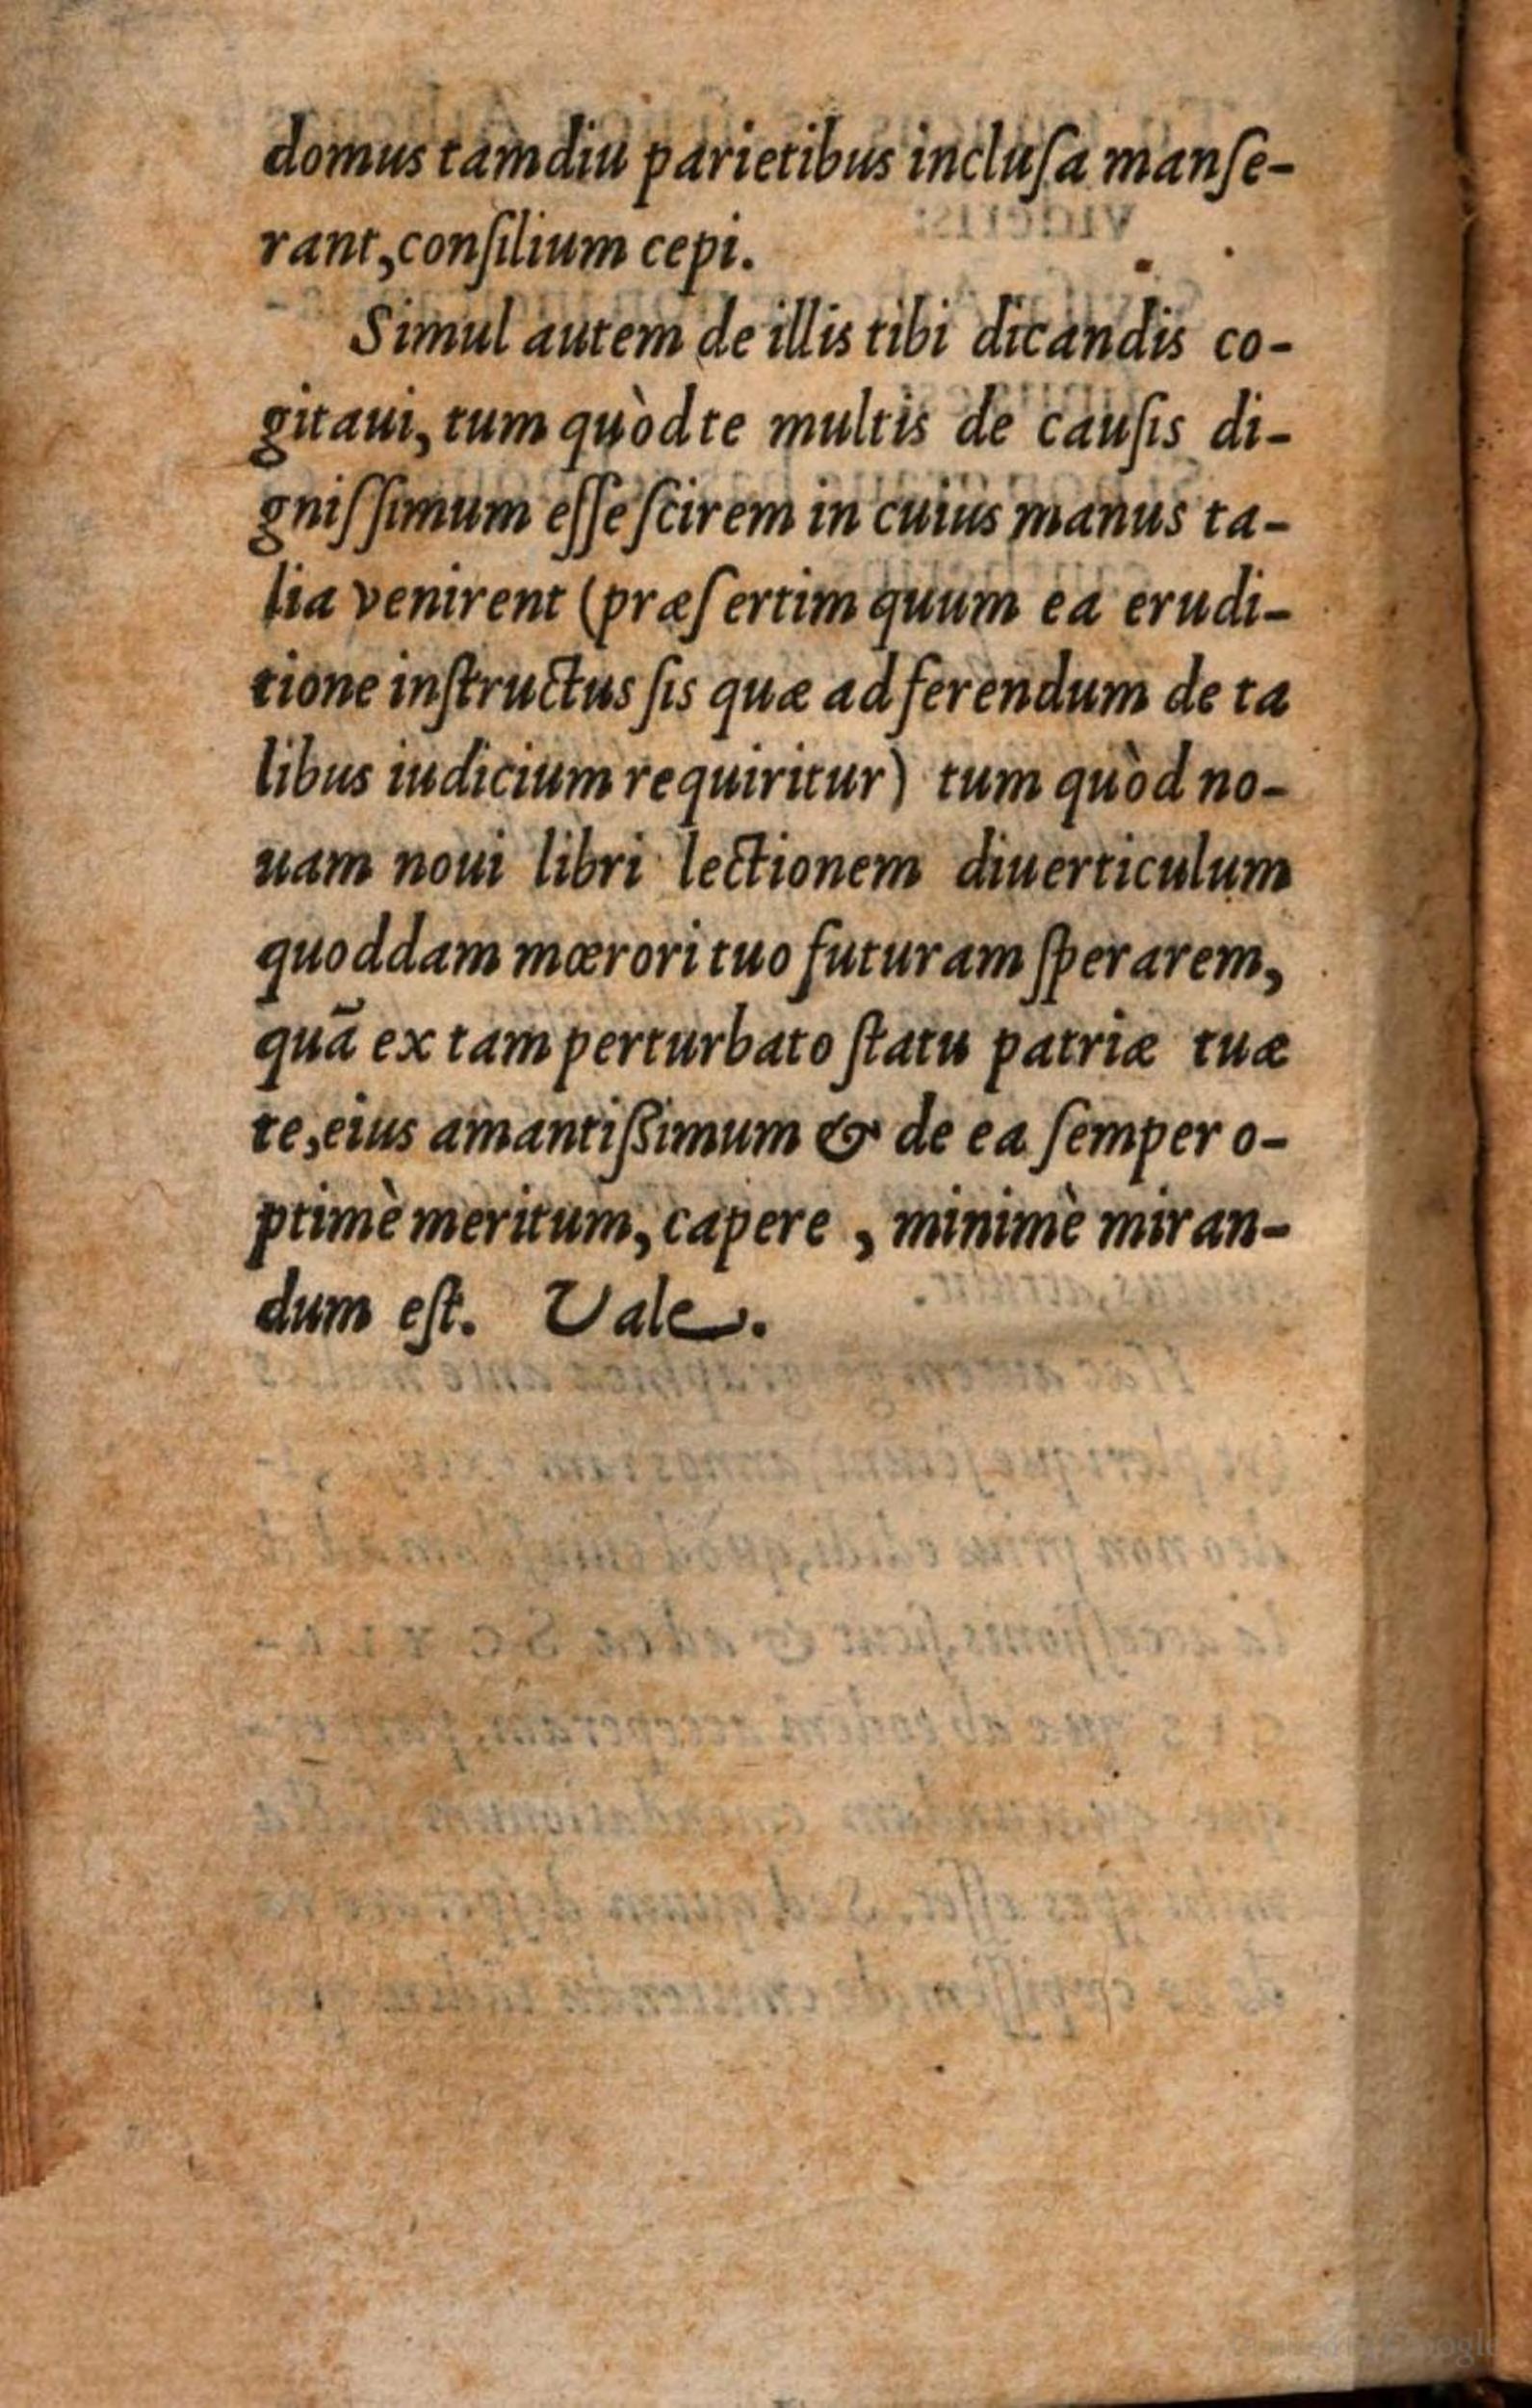 domus tamdiu parietibus incluſa manſe-
rant, conſilium cepi.
Simul autem de illis tibi dicandis co-
gitaui, tum quòd te multis de cauſis di-
gniſſimum eſſe ſcirem in cuius manus ta-
lia venirent (præſertim quum ea erudi-
tione inſtructus ſis quæ ad ferendum de ta
libus iudicium requiritur) tum quòd no-
uam noui libri lectionem diuerticulum
quoddam mœrori tuo futuram ſperarem,
quã ex tam perturbato ſtatu patriæ tuæ
te, eius amantißimum & de ea ſemper o-
ptimè meritum, capere, minimè miran-
dum eſt. Vale.